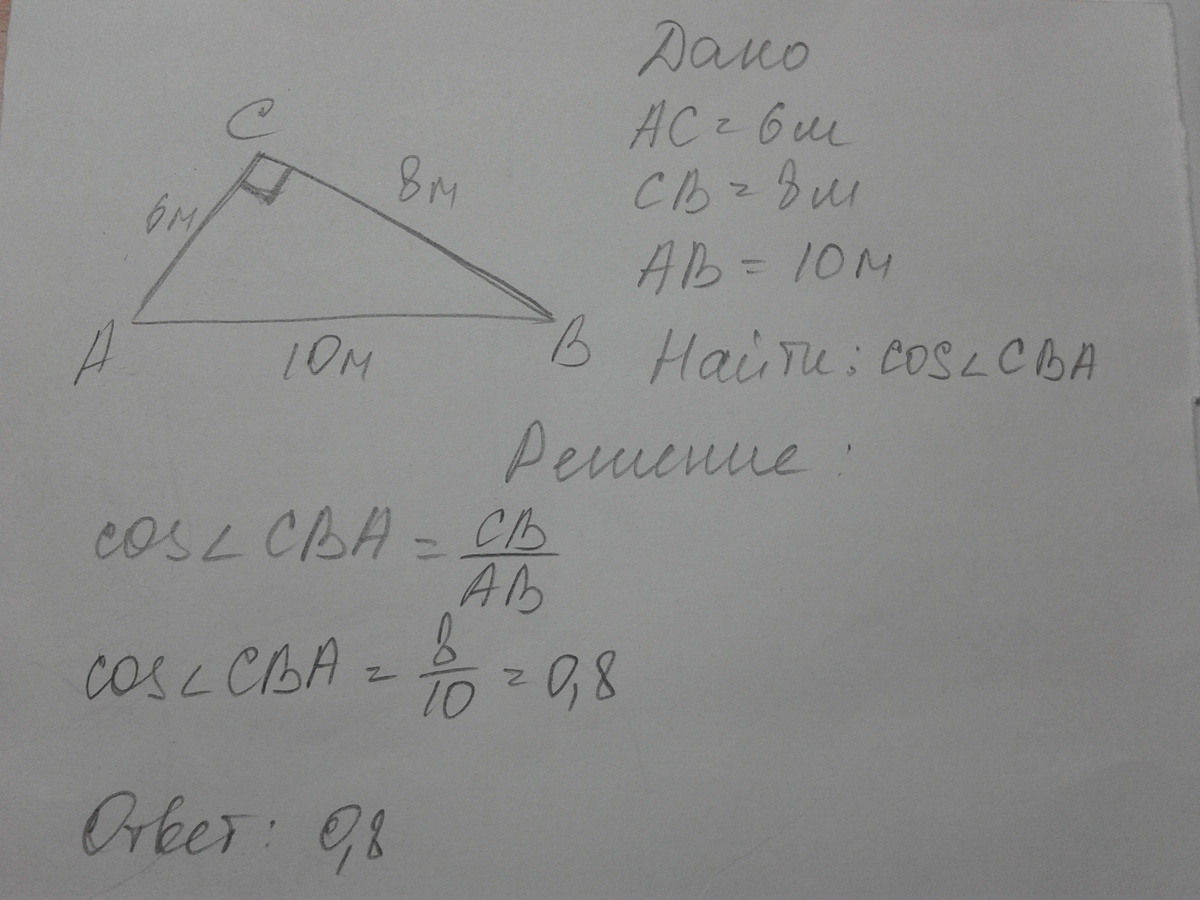 Дано
C
AC = 6м
6м
8м
CB = 8м
AB = 10м
A
10м
B
Найти: cos∠CBA
Решение:
cos∠CBA = CB/AB
cos∠CBA = 8/10 = 0,8
Ответ: 0,8